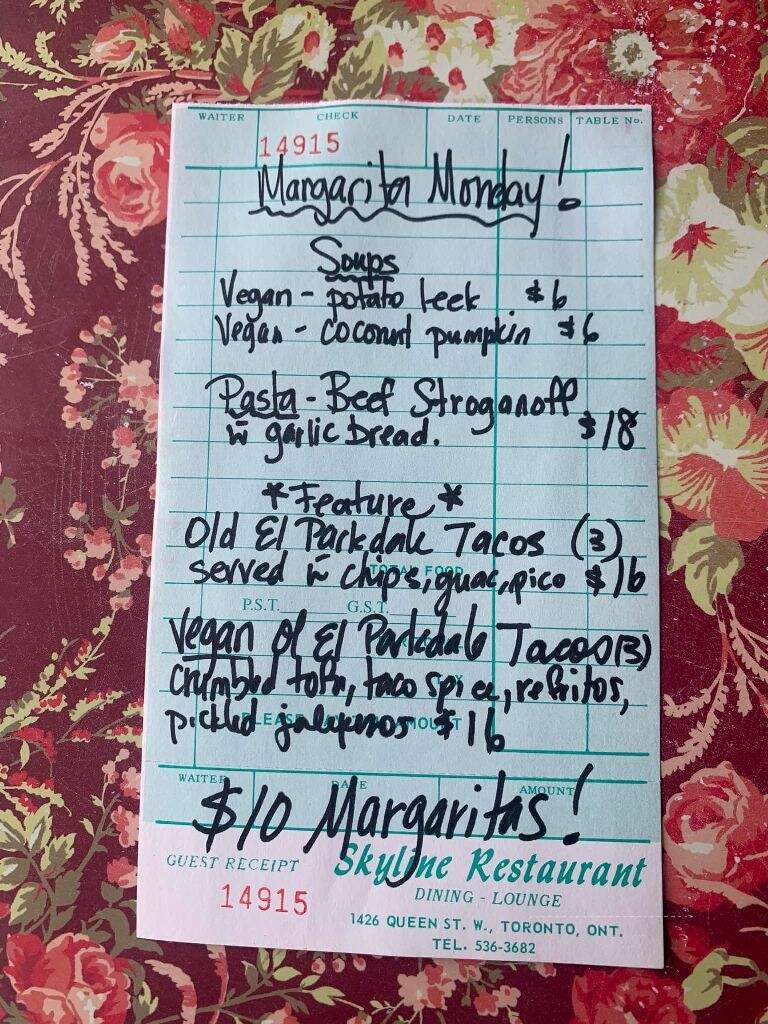 WAITER CHECK DATE PERSONS TABLE No.
14915
Margarita Monday!
Soups
Vegan - potato leek $6
Vegan - coconut pumpkin $6
Pasta - Beef Stroganoff
w garlic bread. $18
*Feature*
Old El Parkdale Tacos (3)
TOTAL FOOD
served w chips, guac, pico $16
P.S.T. G.S.T.
Vegan Ol El Parkdale Tacos (3)
crumbled tofu, taco spice, refritos,
pickled jalapenos $16
WAITER DATE AMOUNT
$10 Margaritas!
GUEST RECEIPT Skyline Restaurant
14915 DINING - LOUNGE
1426 QUEEN ST. W., TORONTO, ONT.
TEL. 536-3682